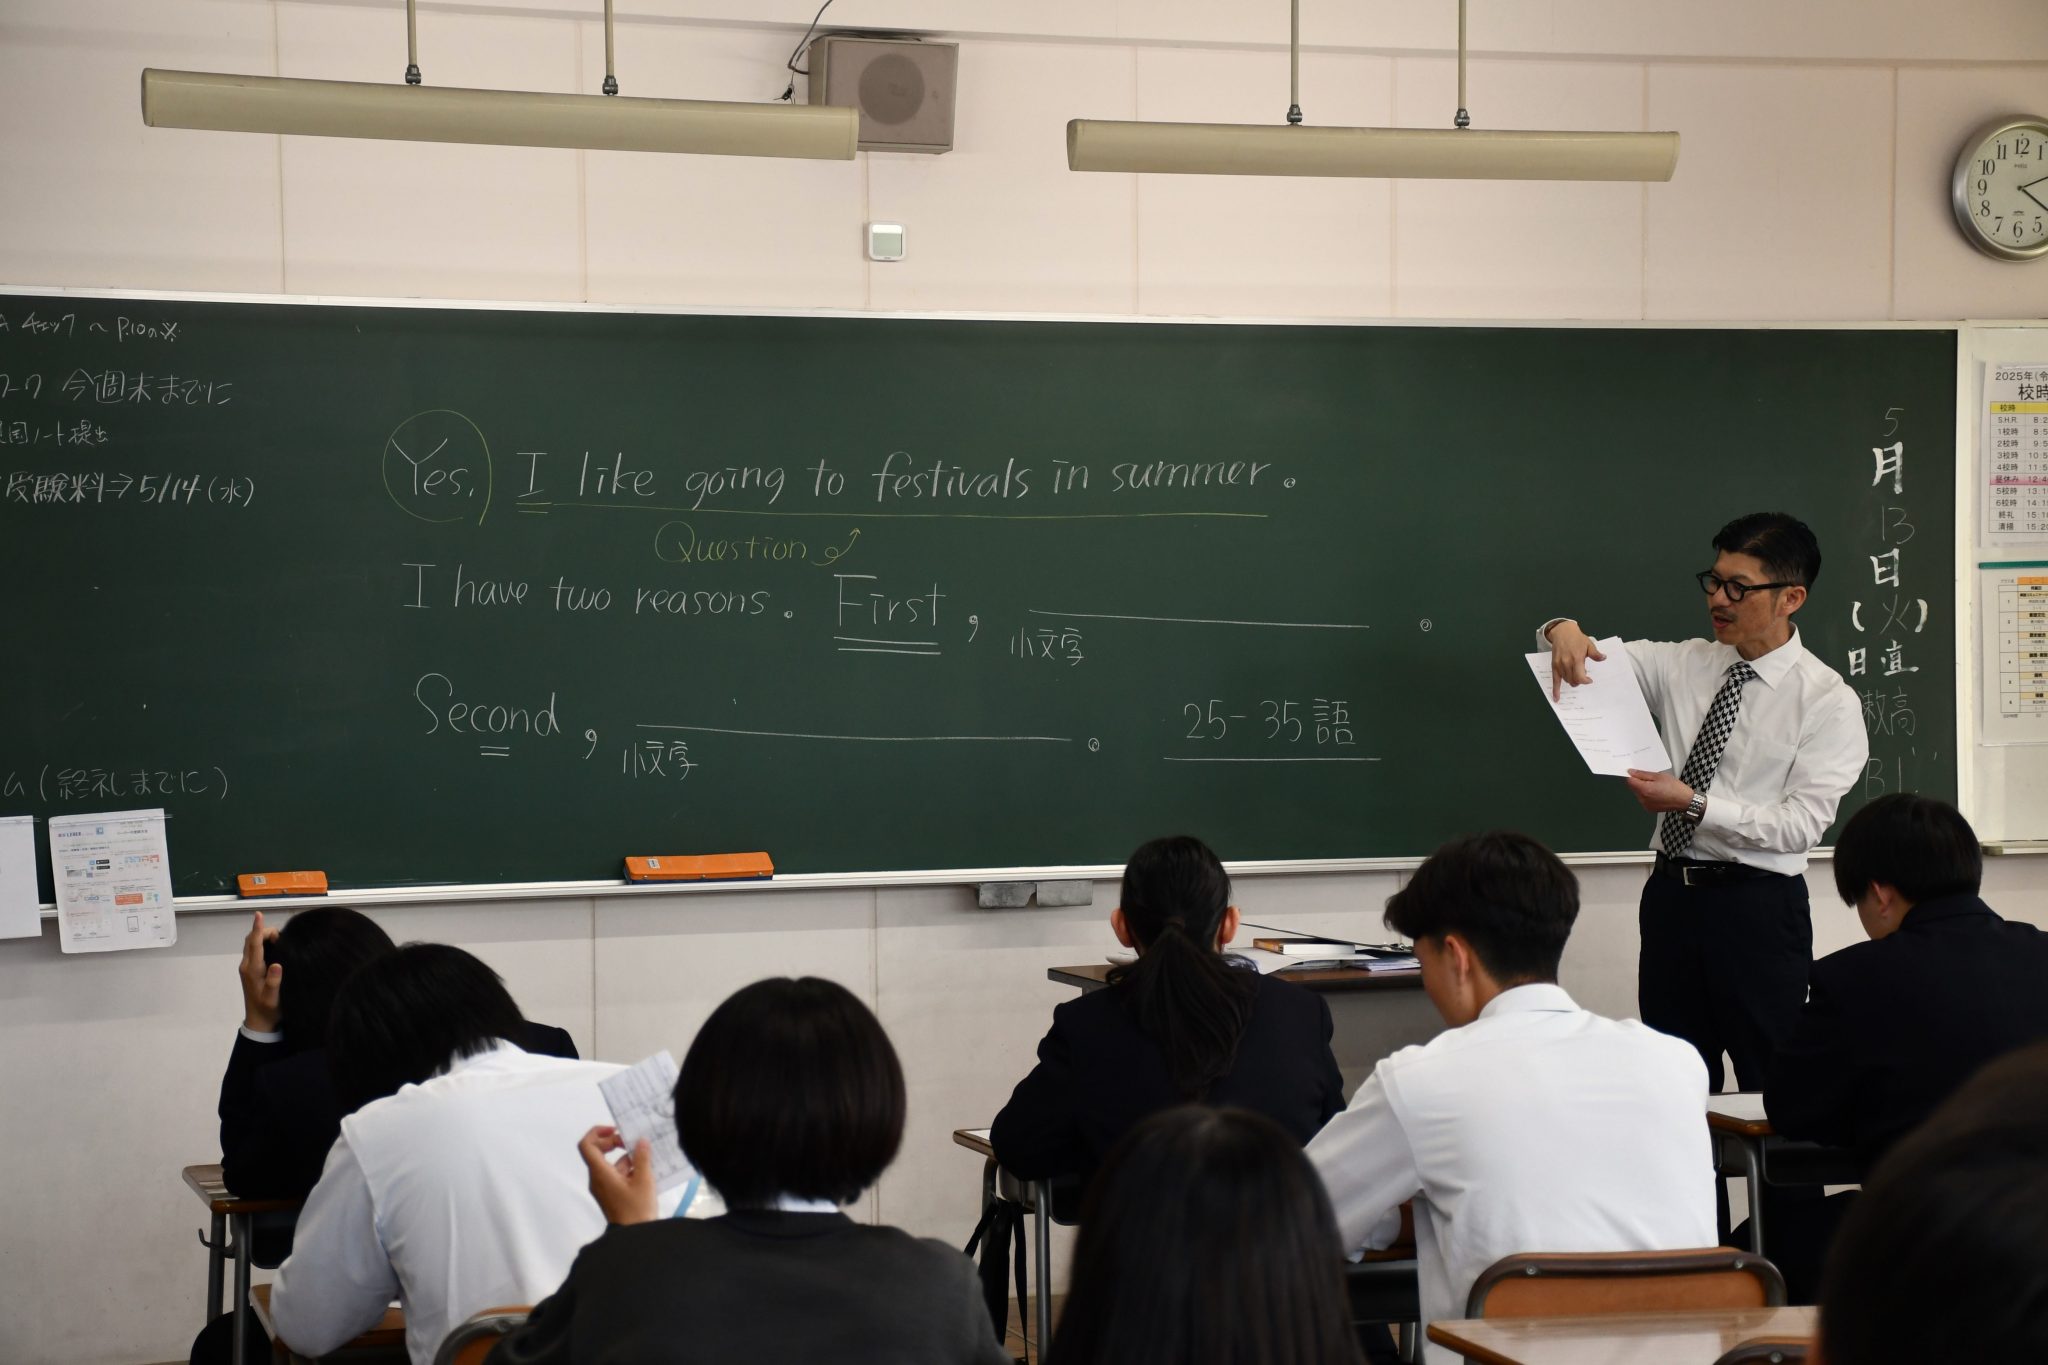 チェック 〜 P.10の※
ワーク 今週末までに
国ノート提出
受験料⇒5/14(水)
ム(終礼までに)
Yes, I like going to festivals in summer.
Question
I have two reasons. First, ____.
小文字
Second, ____.
小文字
25-35語
5
月
13
日
(火)
日直
高
2025年(令
校時
校時
S.H.R. 8:2
1校時 8:5
2校時 9:5
3校時 10:5
4校時 11:5
昼休み 12:4
5校時 13:1
6校時 14:1
終礼 15:1
清掃 15:2
10 11 12 1
9
8 7 6 5